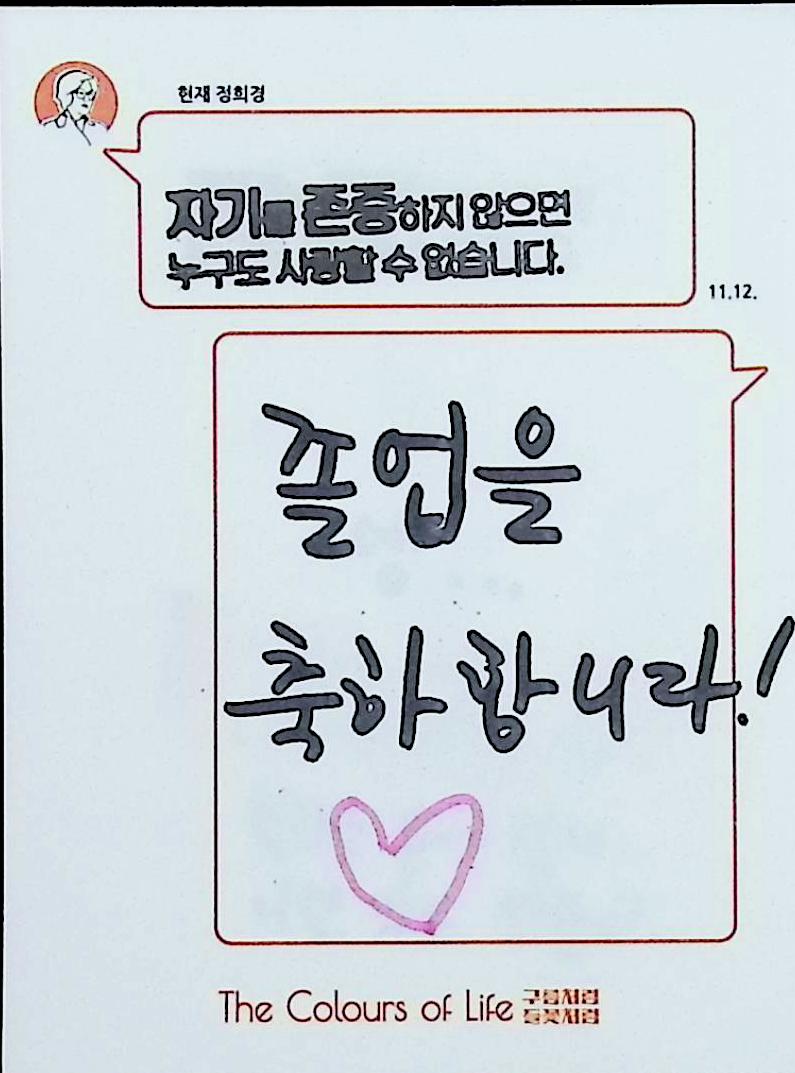 현재 정희경
자기를 존중하지 않으면
누구도 사랑할 수 없습니다.
11.12.
졸업을
축하 합니다!
The Colours of Life 구름처럼
들꽃처럼